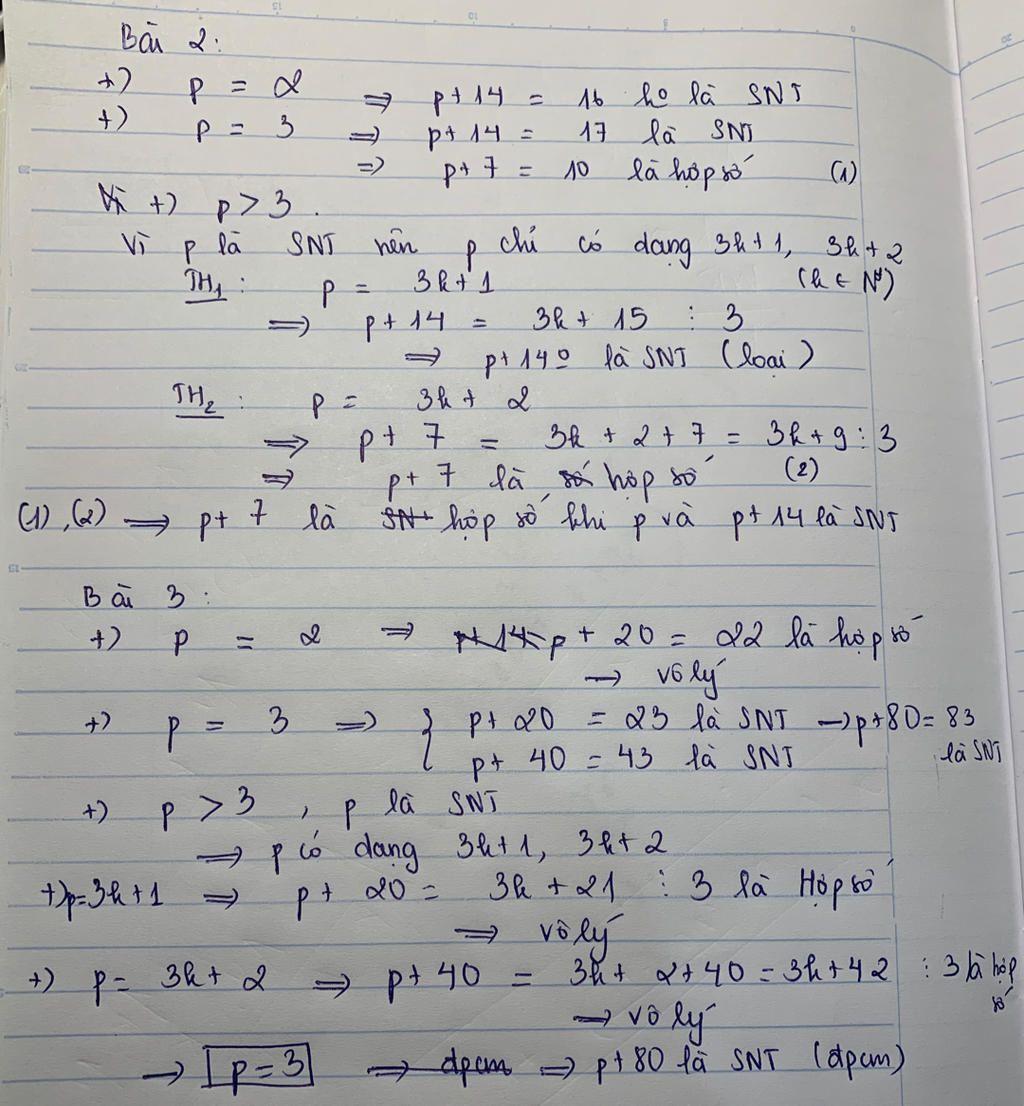 Bài 2:
+) p = 2 => p + 14 = 16 ko là SNT
+) p = 3 => p + 14 = 17 là SNT
=> p + 7 = 10 là hợp số (1)
+) p > 3.
Vì p là SNT nên p chỉ có dạng 3k+1, 3k+2
(k ∈ N*)
TH1: p = 3k+1
=> p + 14 = 3k + 15 ⋮ 3
=> p + 14 o là SNT (loại)
TH2: p = 3k + 2
=> p + 7 = 3k + 2 + 7 = 3k + 9 ⋮ 3
=> p + 7 là hợp số (2)
(1), (2) => p + 7 là hợp số khi p và p + 14 là SNT
Bài 3:
+) p = 2 => p + 20 = 22 là hợp số
→ vô lý
+) p = 3 => { p + 20 = 23 là SNT → p + 80 = 83
p + 40 = 43 là SNT là SNT
+) p > 3, p là SNT
=> p có dạng 3k+1, 3k+2
+) p = 3k+1 => p + 20 = 3k + 21 ⋮ 3 là Hợp số
=> vô lý
+) p = 3k + 2 => p + 40 = 3k + 2 + 40 = 3k + 42 ⋮ 3 là hợp
số
→ vô lý
→ p = 3 => đpcm => p + 80 là SNT (đpcm)